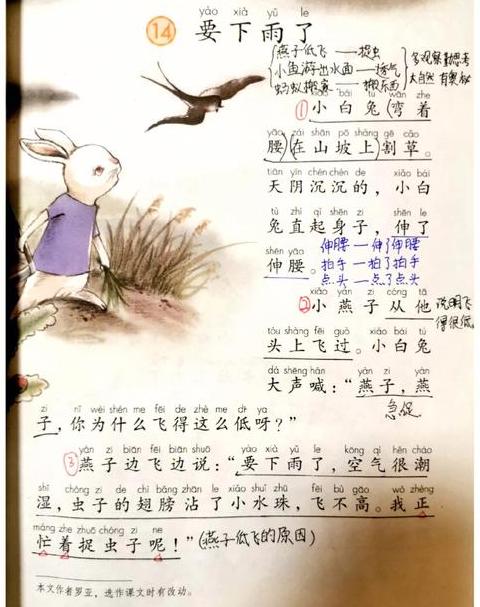 yào xià yǔ le
14 要下雨了
燕子低飞——捉虫
小鱼游出水面——透气
蚂蚁搬家——搬东西
多观察勤思考
大自然有奥秘
xiǎo bái tù wān zhe
①小白兔(弯着
yāo zài shān pō shàng gē cǎo
腰)(在山坡上)割草。
tiān yīn chén chén de xiǎo bái
天阴沉沉的，小白
tù zhí qǐ shēn zi shēn le
兔直起身子，伸了
shēn yāo
伸腰。
伸腰——伸了伸腰
拍手——拍了拍手
点头——点了点头
xiǎo yàn zi cóng tā
②小燕子从他
说明飞
得很低。
tóu shàng fēi guò xiǎo bái tù
头上飞过。小白兔
dà shēng hǎn yàn zi yàn
大声喊：“燕子，燕
急促
zi nǐ wèi shén me fēi de zhè me dī ya
子，你为什么飞得这么低呀？”
yàn zi biān fēi biān shuō yào xià yǔ le kōng qì hěn cháo
③燕子边飞边说：“要下雨了，空气很潮
shī chóng zi de chì bǎng zhān le xiǎo shuǐ zhū fēi bù gāo wǒ zhèng
湿，虫子的翅膀沾了小水珠，飞不高。我正
máng zhe zhuō chóng zi ne
忙着捉虫子呢！”(燕子低飞的原因)
本文作者罗亚，选作课文时有改动。